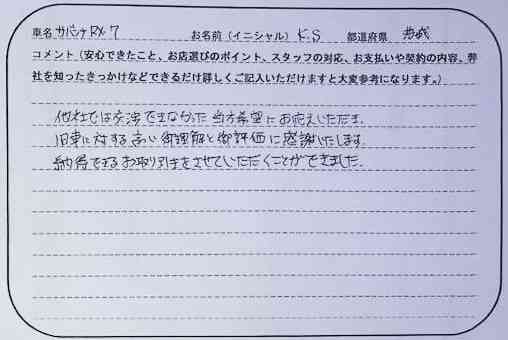 車名 サバンナRX-7 お名前（イニシャル） K.S 都道府県 茨城
コメント（安心できたこと、お店選びのポイント、スタッフの対応、お支払いや契約の内容、弊
社を知ったきっかけなどできるだけ詳しくご記入いただけますと大変参考になります。）
他社では交渉できなかった当方希望にお応えいただき、
旧車に対する高い御理解と御評価に感謝いたします。
納得できるお取り引きをさせていただくことができました。